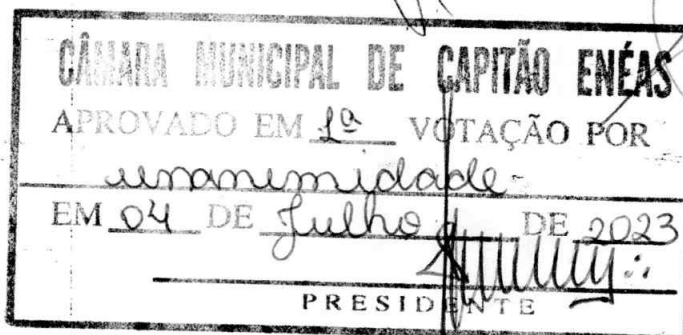 CÂMARA MUNICIPAL DE CAPITÃO ENÉAS
APROVADO EM 1ª VOTAÇÃO POR
unanimidade-
EM 04 DE Julho DE 2023
PRESIDENTE